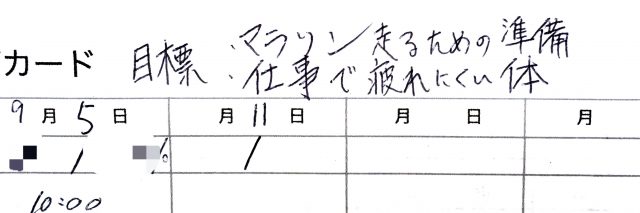 カード 目標 ・マラソン走るための準備
・仕事で疲れにくい体
9月5日 月11日 月 日 月
/ % /
10:00